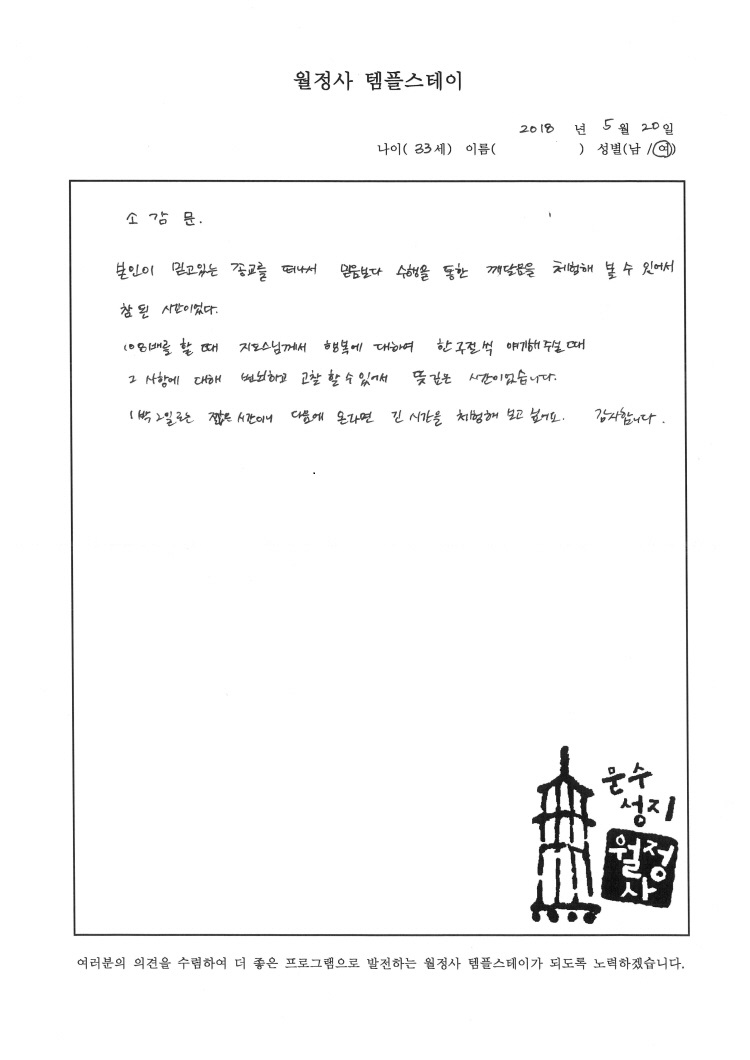 월정사 템플스테이
2018 년 5 월 20 일
나이( 33 세) 이름( ) 성별(남 /여)
소 감 문.
본인이 믿고있는 종교를 떠나서 믿음보다 수행을 통한 깨달음을 체험해 볼 수 있어서
참 된 시간이었다.
108배를 할 때 지도스님께서 행복에 대하여 한구절씩 얘기해주실때
그 사항에 대해 번뇌하고 고찰 할 수 있어서 뜻깊은 시간이었습니다.
1박2일로는 짧은 시간이니 다음에 온다면 긴 시간을 체험해 보고 싶어요. 감사합니다.
문수
성지
월정
사
여러분의 의견을 수렴하여 더 좋은 프로그램으로 발전하는 월정사 템플스테이가 되도록 노력하겠습니다.